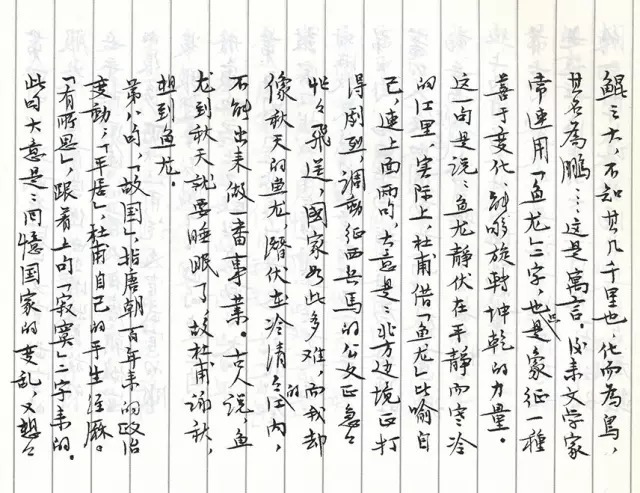 鯤之大，不知其几千里也，化而為鳥，
其名為鵬…：这是寓言。后来文学家
常连用「鱼龙」二字也是象征一種
善于变化、能够旋转坤乾的力量。
这一句是说：鱼龙静伏在平静而寒冷
的江里，实际上，杜甫借「鱼龙」比喻自
己，连上面两句，大意是：北方边境正打
得剧烈，调动征西兵馬的公文正急々
忙々飞送，國家如此多难，而我却
像秋天的鱼龙，潜伏在冷清的江内，
不能出来做一番事業。古人说，鱼
龙到秋天就要睡眠了，故杜甫詠秋，
想到鱼龙。
第八句「故国」，指唐朝一百年来的政治
变動；「平居」，杜甫自己的平生经厤。
「有所思」，跟着上句「寂寞」二字来的。
此句大意是：回憶国家的变乱，又想々